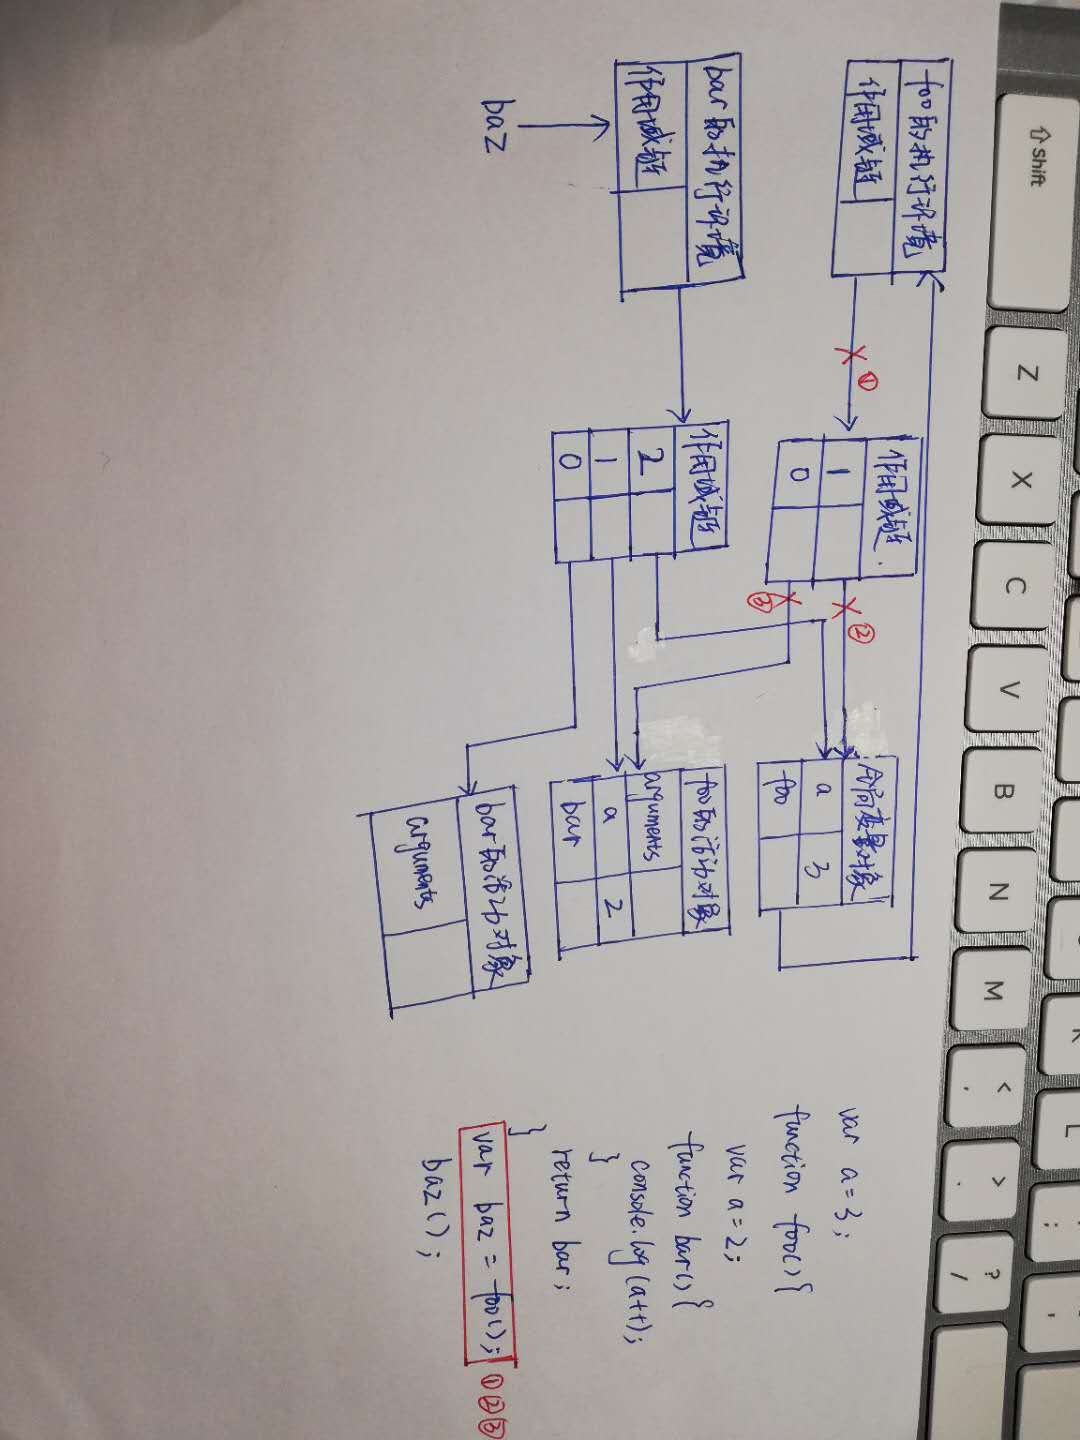 Shift
Z
X
C
V
B
N
M
<
,
>
.
?
/
K
L
;
foo的执行环境
作用域链
①
作用域链
1
0
②
③
全局变量对象
a 3
foo
bar的执行环境
作用域链
baz
作用域链
2
1
0
foo的活动对象
arguments
a 2
bar
bar的活动对象
arguments
var a=3;
function foo(){
var a=2;
function bar(){
console.log(a++);
}
return bar;
}
var baz = foo(); ①②③
baz();